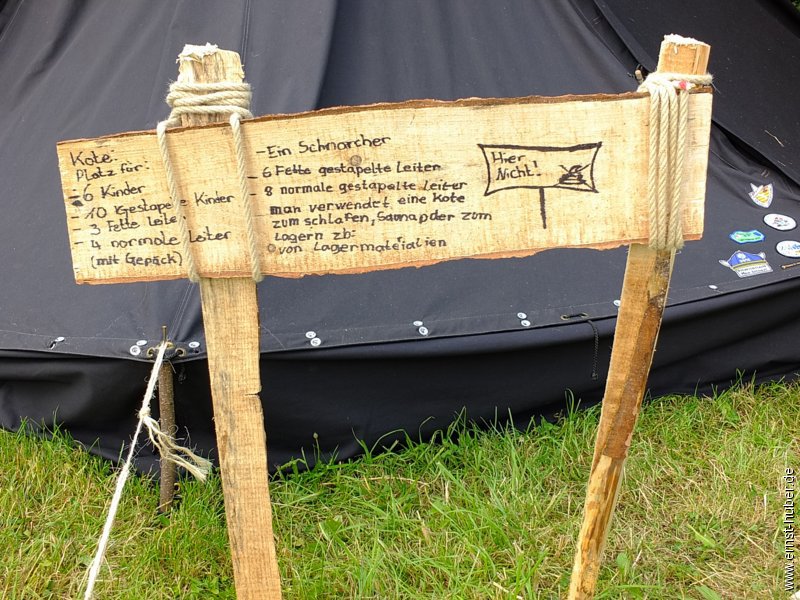 Kote:
Platz für:
- 6 Kinder
- 10 gestapelte Kinder
- 3 Fette Leiter
- 4 normale Leiter
(mit Gepäck)
- Ein Schnarcher
- 6 Fette gestapelte Leiter
- 8 normale gestapelte Leiter
man verwendet eine Kote
zum schlafen, Sauna, oder zum
Lagern zb:
von Lagermateialien
Hier
Nicht!
www.ernst-huber.de